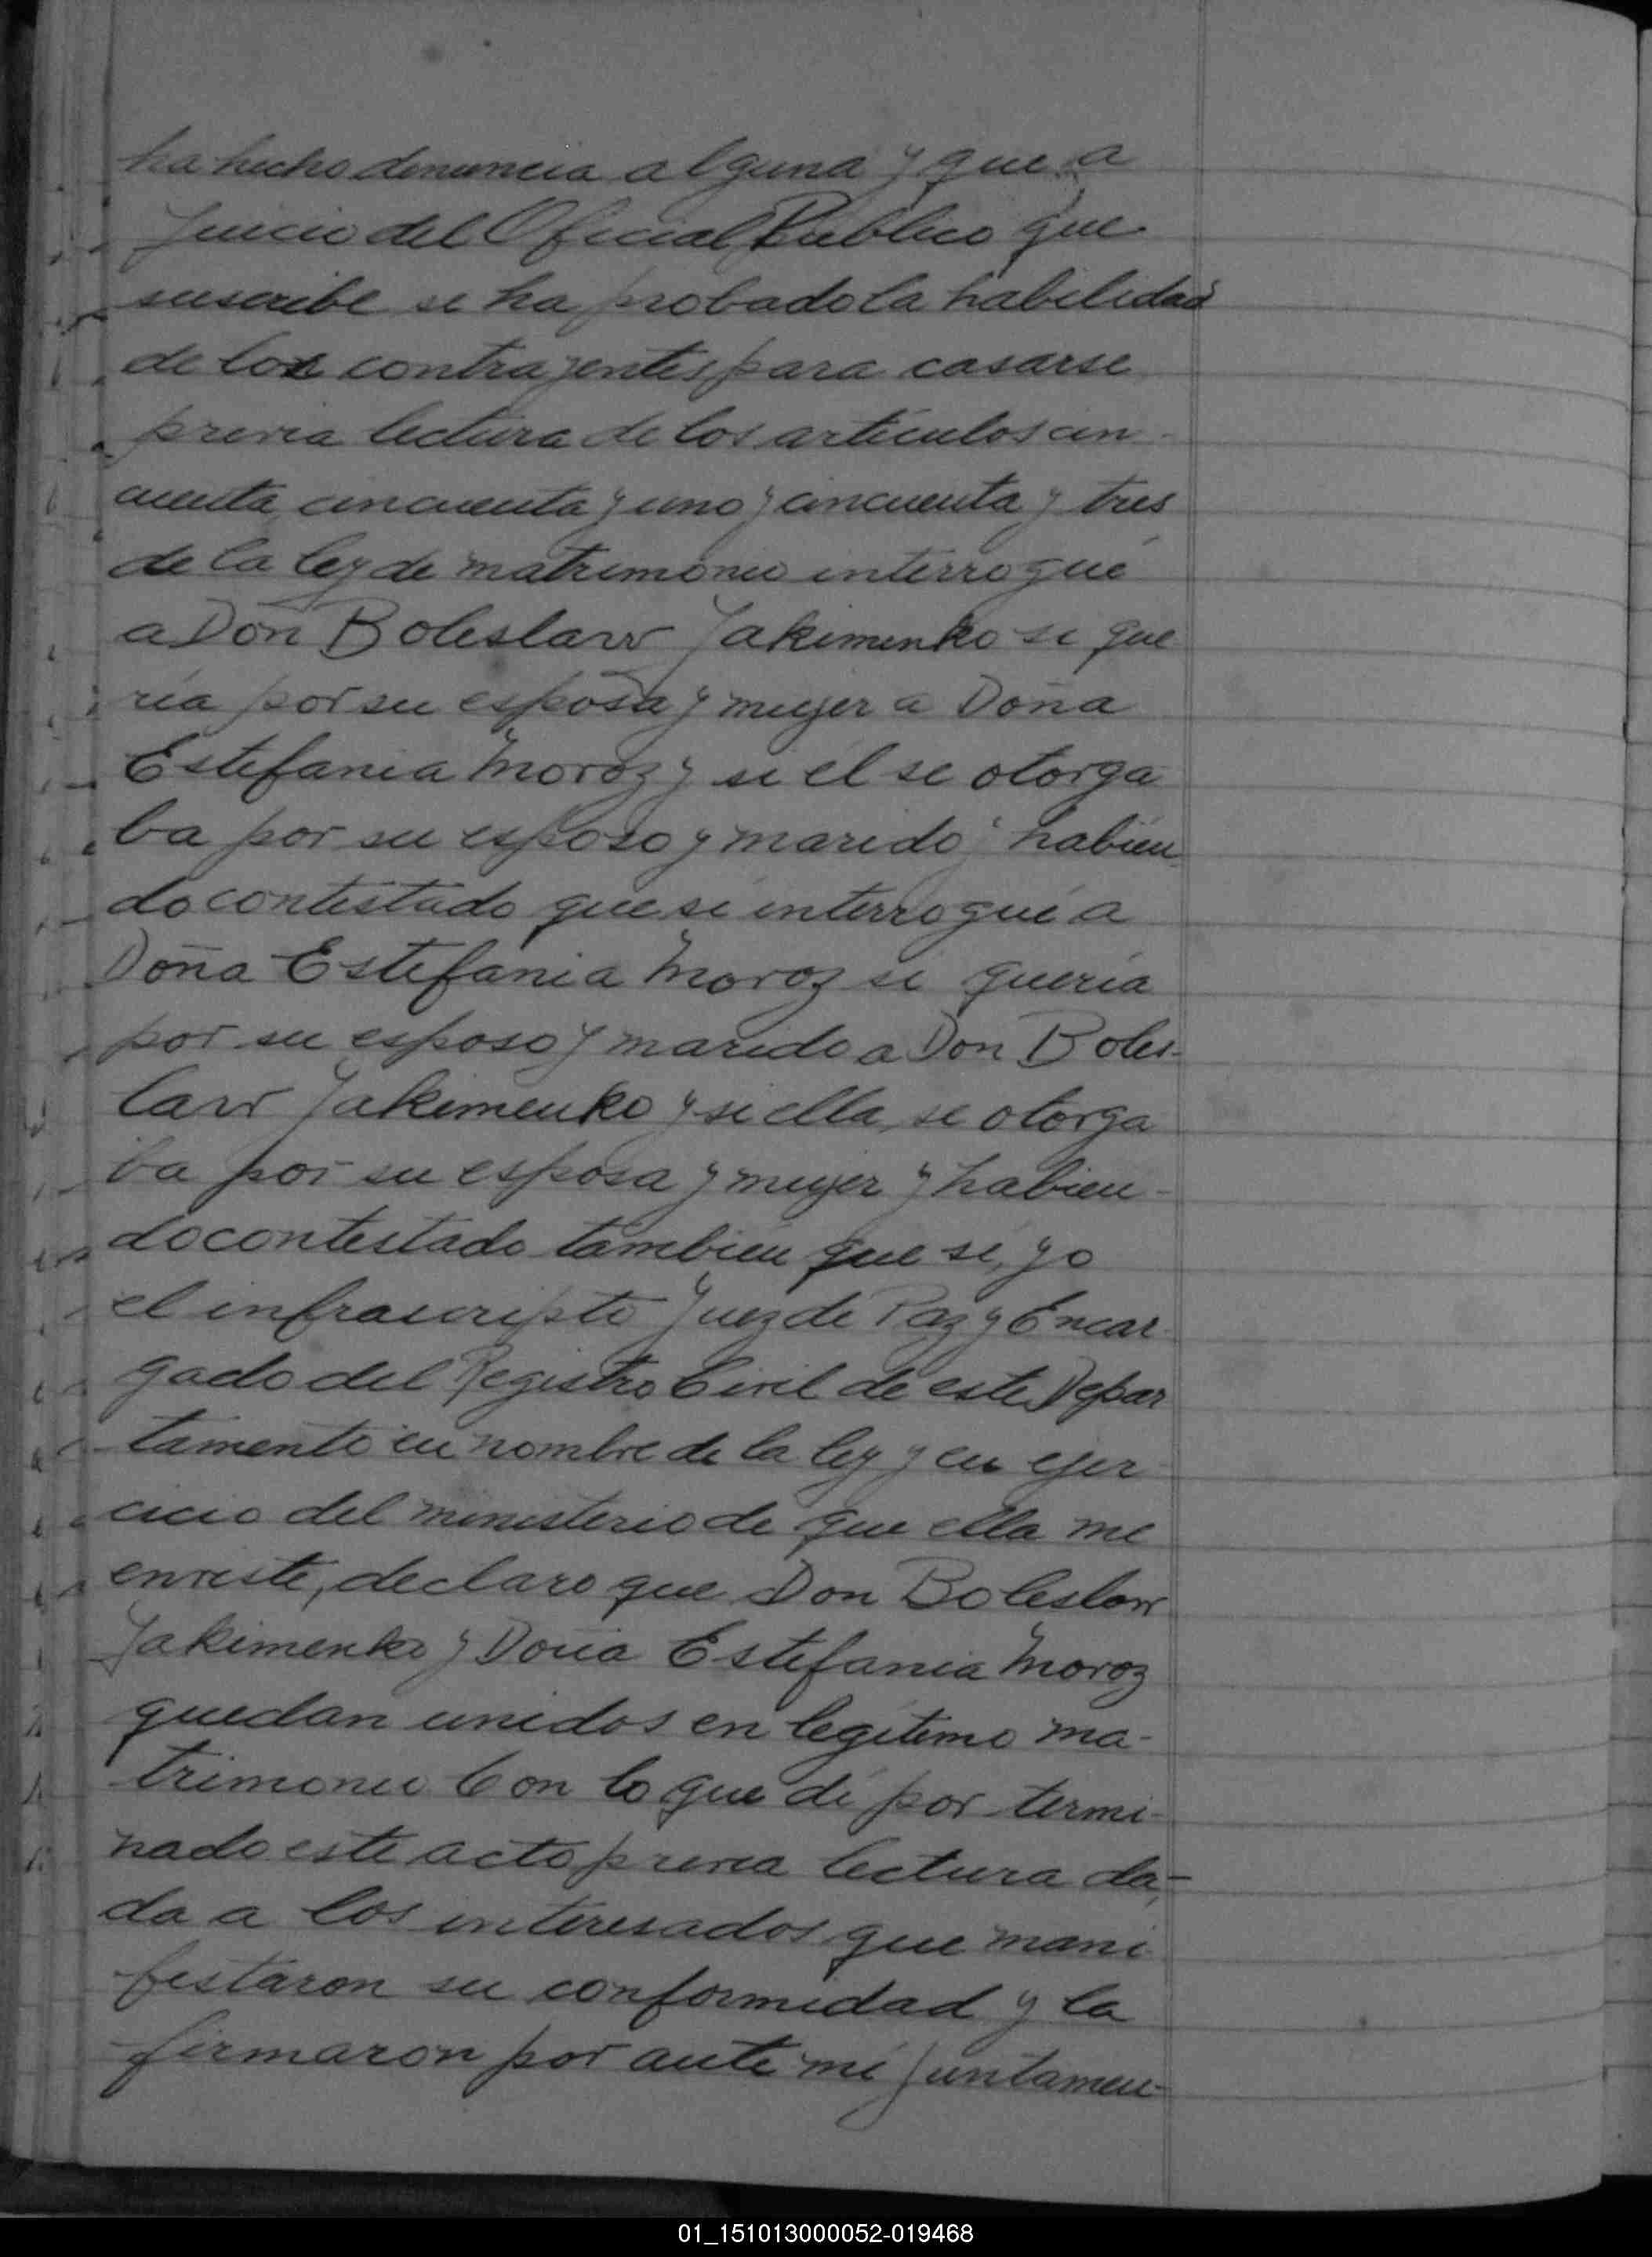 ha hecho denuncia alguna y que a
Juicio del Oficial Publico que
suscribe se ha probado la habilidad
de los contrajentes para casarse
previa lectura de los artículos cin
cuenta, cincuenta y uno y cincuenta y tres
de la ley de matrimonio interrogué
a Don Boleslaw Jakimenko si que
ría por su esposa y mujer a Doña
Estefania Moroz y si él se otorga
ba por su esposo y marido y habien
do contestado que si interrogué a
Doña Estefania Moroz si quería
por su esposo y marido a Don Boles-
law Jakimenko y si ella se otorga
ba por su esposa y mujer y habien-
do contestado tambien que sí, yo
el infrascripto Juez de Paz y Encar
gado del Registro Civil de este Depar
tamento en nombre de la ley y en ejer
cicio del ministerio de que ella me
enviste, declaro que Don Boleslaw
Jakimenko y Doña Estefania Moroz
quedan unidos en legítimo ma-
trimonio Con lo que dí por termi-
nado este acto previa lectura da-
da a los interesados que mani
festaron su conformidad y la
firmaron por ante mí juntamen-
01_151013000052-019468